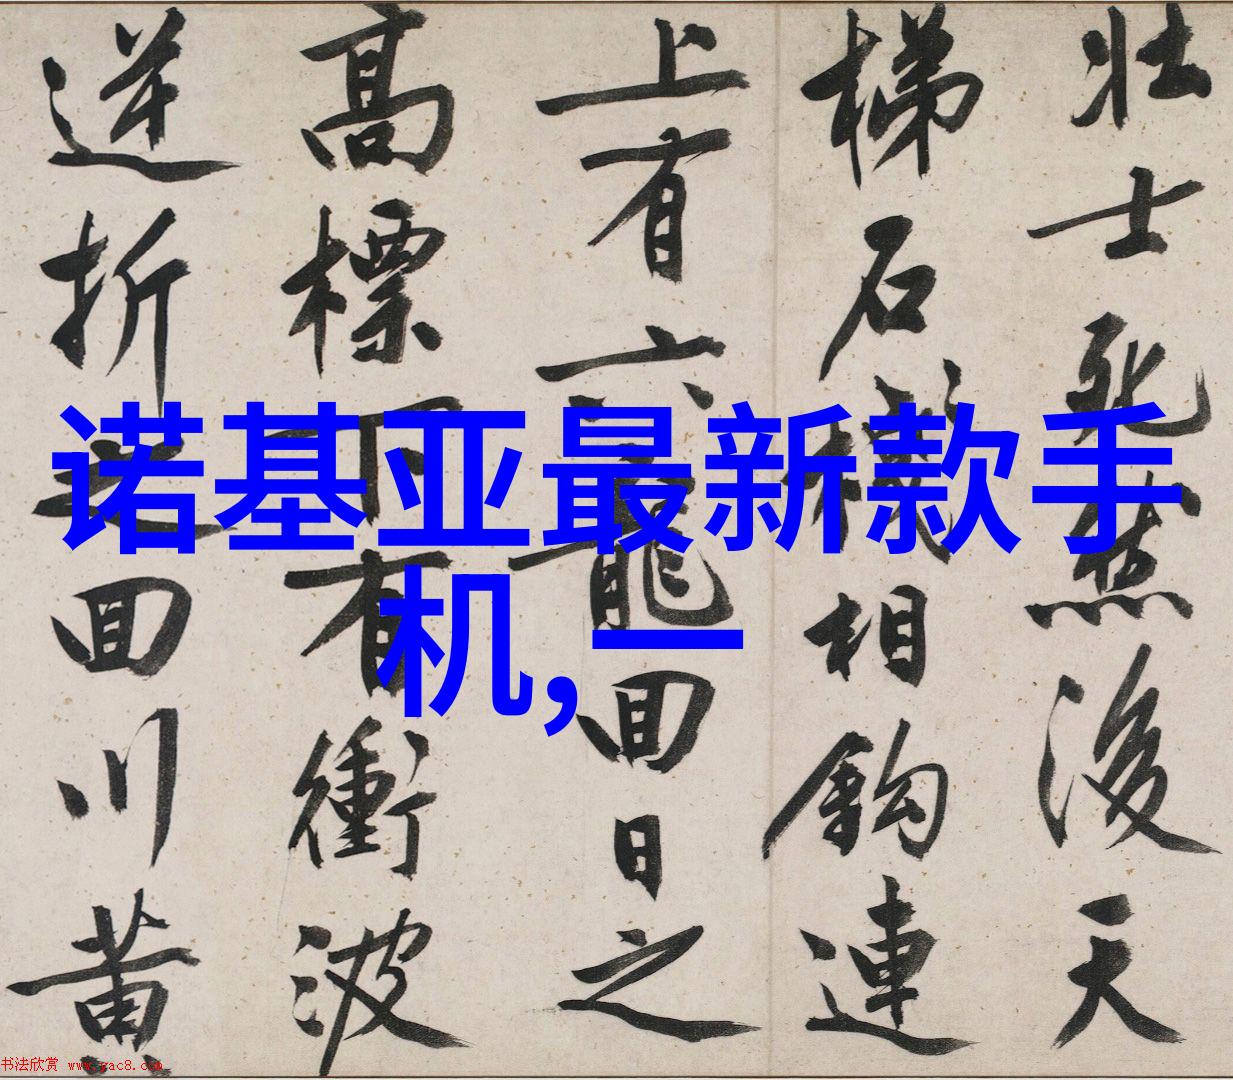 壯士死然後天
梯石棧相鈎連
上有六龍回日之
高標下有衝波
逆折之回川黄
诺基亚最新款手
机,一
书法欣赏 www.yac8.com